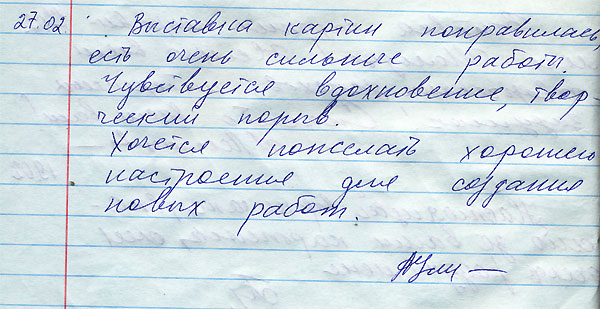 27.02. Выставка картин понравилась,
есть очень сильные работы.
Чувствуется вдохновение, твор-
ческий порыв.
Хочется пожелать хорошего
настроения для создания
новых работ.